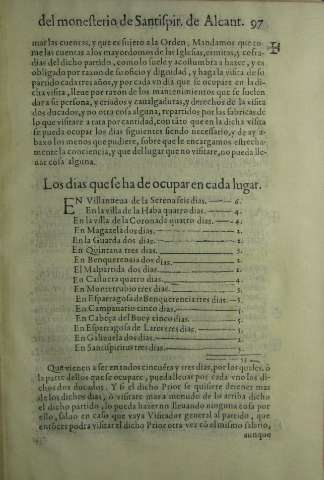 del monesterio de Santispir. de Alcant. 97
mar las cuentas, y que es sujeto a la Orden; Mandamos que to-
me las cuentas a los mayordomos de las Iglesias, ermitas, y cofra-
dias del dicho partido, como lo suele y acostumbra a hazer, y es
obligado por razon de su oficio y dignidad, y haga la visita de su
partido cada tres años, y por cada vn dia que se ocupare en la di-
cha visita, lleue por razon de los mantenimientos que se suelen
dar a su persona, y criados y caualgaduras, y derechos de la visita
dos ducados, y no otra cosa alguna, repartidos por las fabricas de
lo que visitare a rata por cantidad, con tãto que en la dicha visita
se pueda ocupar los dias siguientes siendo necessario, y de ay a-
baxo los menos que pudiere, sobre que le encargamos estrecha-
mente la conciencia, y que del lugar que no visitare, no pueda lle-
uar cosa alguna.
Los dias que se ha de ocupar en cada lugar.
EN Villanueua de la Serena seis dias. 6.
En la villa de la Haba quatro dias. 4.
En la villa de la Coronada quatro dias. 4.
En Magazela dos dias. 2.
En la Guarda dos dias. 2.
En Quintana tres dias. 3.
En Benquerencia dos dias. 2.
El Malpartida dos dias. 2.
En Castuera quatro dias. 4.
En Monterrubio tres dias. 3.
En Esparragosa de Benquerencia tres dias. 3.
En Campanario cinco dias. 5.
En Cabeça del Buey cinco dias. 5.
En Esparragosa de Lares tres dias. 3.
En Galizuela dos dias. 2.
En Santispiritus tres dias. 3.
53
Que vienen a ser en todos cincuẽta y tres dias, por los quales, ò
la parte dellos que se ocupare, pueda lleuar por cada vno los di-
chos dos ducados. Y si el dicho Prior se quisiere detener mas
de los dichos dias, ò visitare mas a menudo de lo arriba dicho
el dicho partido, lo pueda hazer no lleuando ninguna cosa por
ello, saluo en caso que vaya Visitador general al partido, que
entõces podra visitar el dicho Prior otra vez cõ el mismo salario,
aunque